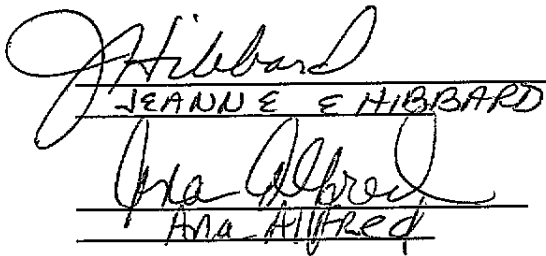 J Hibbard
JEANNE E HIBBARD
Ana Alfred
Ana Alfred